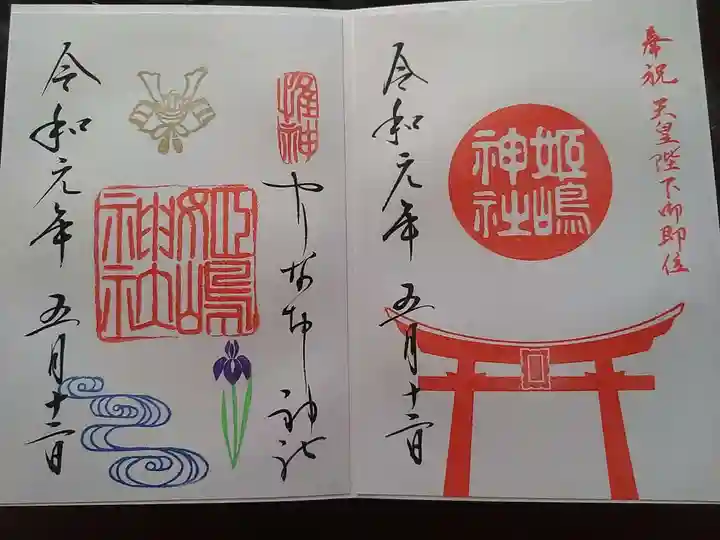 奉祝 天皇陛下御即位
姫嶋神社
令和元年 五月十二日
やりなおし神社
姫嶋神社
令和元年 五月十二日